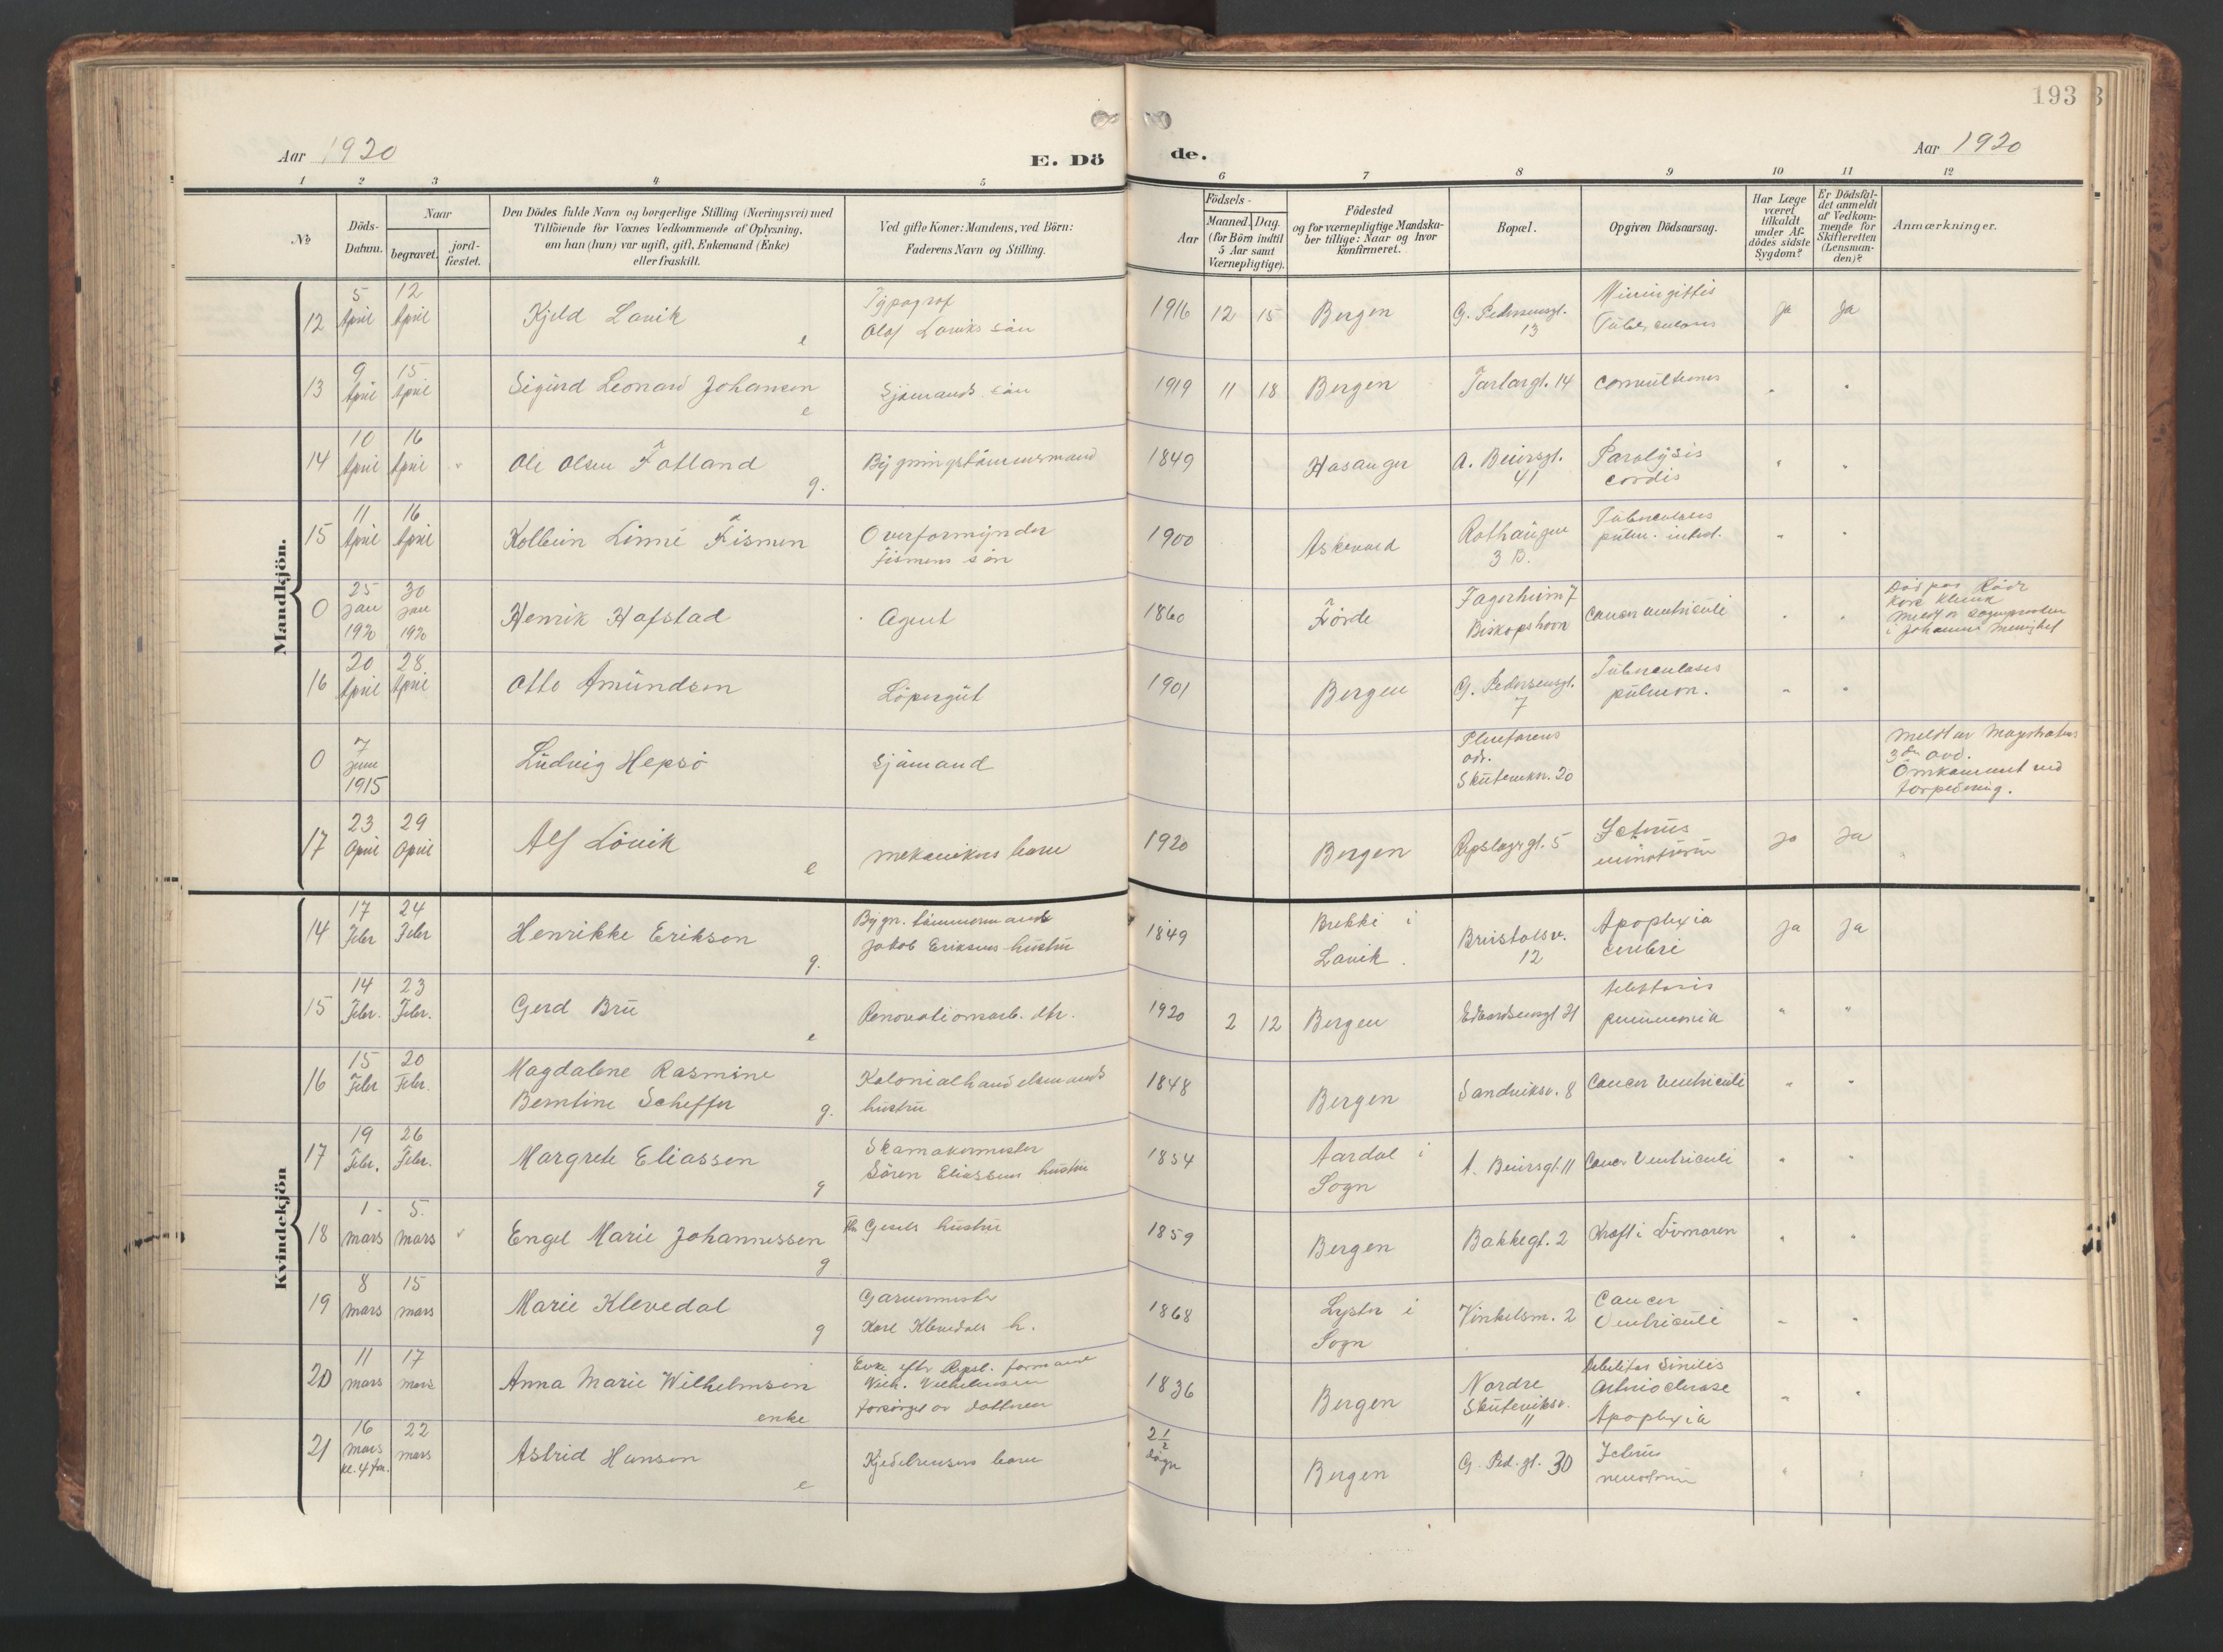 193
Aar 1920
E. Döde.
Aar 1920
1 2 3 4 5 6 7 8 9 10 11 12
No
Döds-Datum.
Naar
begravet.
jord-fæstet.
Den Dödes fulde Navn og borgerlige Stilling (Næringsvei) med
Tilföiende for Voxnes Vedkommende af Oplysning,
om han (hun) var ugift, gift, Enkemand (Enke)
eller fraskilt.
Ved gifte Koner: Mandens, ved Börn:
Faderens Navn og Stilling.
Födsels-
Aar
Maaned. Dag.
(for Börn indtil
5 Aar samt
Værnepligtige).
Födested
og for værnepligtige Mandska-
ber tillige: Naar og hvor
konfirmeret.
Bopæl.
Opgiven Dödsaarsag.
Har Læge
været
tilkaldt
under Af-
dödes sidste
Sygdom?
Er Dödsfal-
det anmeldt
af Vedkom-
mende for
Skifteretten
(Lensman-
den)?
Anmærkninger.
Mandkjön.
12 5 April 12 April Kjeld Lavik e Typograf Olaf Laviks sön 1916 12 15 Bergen G. Pedersensgt. 13 Miningittis Tuberculosis Ja Ja
13 9 April 15 April Sigurd Leonard Johansen e Sjömands sön 1919 11 18 Bergen Tartargt. 14 Convultiones " "
14 10 April 16 April " Ole Olsen Fatland g. Bygningstömmermand 1849 Hosanger A. Beiersgt. 41 Paralysis cordis " "
15 11 April 16 April Kolbein Linné Fismen Overformynder Fismens sön 1900 Askevold Rothaugen 3 B. Tuberculosis pulm. intest. " "
0 25 Jan 1920 30 Jan 1920 Henrik Hafstad Agent 1860 Förde Fagerheim 7 Biskopshavn Cancer ventriculi " " Död paa Röde Kors Klinik Meldt av Sogneprester i Johannes Menighet
16 20 April 28 April Otto Amundsen Löpergut 1901 Bergen G. Pedersensgt. 7 Tuberculosis pulmon. " "
0 7 Juni 1915 Ludvig Hepsö Sjömand Pleiefarens adr. Skutevikv. 20 Meldt av Magistratens 3die avd. Omkommet ved torpedering.
17 23 April 29 April Alf Lövik e mekanikers barn 1920 Bergen Repslagergt. 5 Icterus Ja Ja
Kvindekjön
14 17 Febr 24 Febr Henrikke Eriksen g. Bygn. tömmermand Jakob Eriksens hustru 1849 Brekke i Lavik. Breistølsv. 12 Apoplexia cerebri Ja Ja
15 14 Febr. 23 Febr. Gerd Bru e Renovationsarb. dtr. 1920 2 12 Bergen Edvardsensgt 21 pneumonia " "
16 15 Febr 20 Febr. Magdalene Rasmine Berntine Scheffer g. Kolonialhandelsmands hustru 1848 Bergen Sandviksv. 8 Cancer Ventriculi " "
17 19 Febr. 26 Febr. Margrete Eliassen g Skomakermester Sören Eliassens hustru 1854 Aardal i Sogn A. Beiersgt. 11 Cancer Ventriculi " "
18 1 mars 5 mars Engel Marie Johannessen g Gesels hustru 1859 Bergen Bakkegt. 2 Kræft i Livmoren " "
19 8 mars 15 mars Marie Klevedal g Garvermester Karl Klevedals h. 1868 Lyster i Sogn Vinkelsm. 2 Cancer Ventriculi " "
20 11 mars 17 mars Anna Marie Wilhelmsen enke Enke efter Repsl. formand Vilh. Vilhelmsen forsörget av dottren 1836 Bergen Nordre Skuteviksv. 11 Debilitas Sinilis Arteriosclerose Apoplexia " "
21 16 mars kl. 4 fm. 22 mars Astrid Hansen e Kjedelrensers barn 2 1/2 dögn Bergen G. Ped. gt. 30 Icterus " "